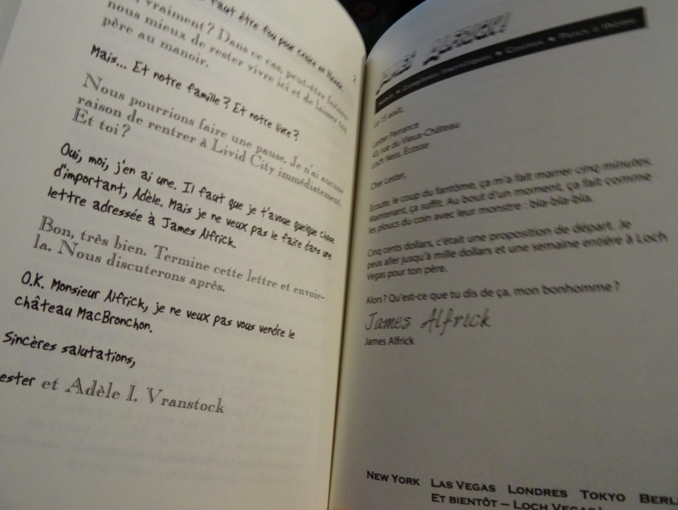 faut être fou pour croire en Nessie.
vraiment ? Dans ce cas, peut-être ferions-
nous mieux de rester vivre ici et de laisser ton
père au manoir.
Mais... Et notre famille ? Et notre livre ?
Nous pourrions faire une pause. Je n'ai aucune
raison de rentrer à Livid City immédiatement.
Et toi ?
Oui, moi, j'en ai une. Il faut que je t'avoue quelque chose
d'important, Adèle. Mais je ne veux pas le faire dans une
lettre adressée à James Alfrick.
Bon, très bien. Termine cette lettre et envoie-
la. Nous discuterons après.
O.K. Monsieur Alfrick, je ne veux pas vous vendre le
château MacBronchon.
Sincères salutations,
ester et Adèle I. Vranstock
JAMES ALFRICK!
Hôtels • Complexes touristiques • Casinos • Parcs à thème
Le 15 août,
Lester
43, rue du Vieux-Château
Loch Ness, Écosse
Cher Lester,
Écoute, le coup du fantôme, ça m'a fait marrer cinq minutes.
Maintenant, ça suffit. Au bout d'un moment, ça fait comme
les ploucs du coin avec leur monstre : bla-bla-bla.
Cinq cents dollars, c'était une proposition de départ. Je
peux aller jusqu'à mille dollars et une semaine entière à Loch
Vegas pour ton père.
Alors ? Qu'est-ce que tu dis de ça, mon bonhomme ?
James Alfrick
James Alfrick
NEW YORK LAS VEGAS LONDRES TOKYO BERL
ET BIENTÔT – LOCH VEGAS !